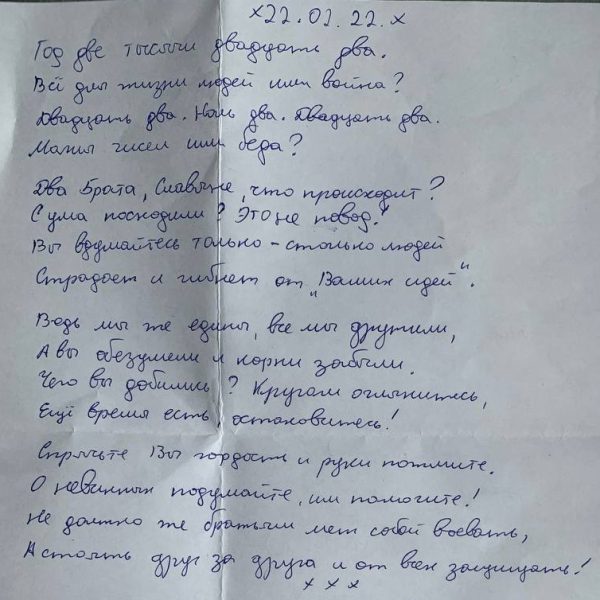 х22.02.22.х
Год две тысячи двадцать два.
Всё для жизни людей или война?
Двадцать два. Ноль два. Двадцать два.
Магия чисел или беда?
Два Брата, Славяне, что происходит?
С ума посходили? Это не повод!
Вы вдумайтесь только - столько людей
Страдает и гибнет от „Ваших идей".
Ведь мы же едины, все мы дружили,
А вы обезумели и корни забыли.
Чего вы добились? Кругом оглянитесь,
Ещё время есть, остановитесь!
Спрячьте Вы гордость и руки пожмите.
О невинных подумайте, им помогите!
Не должно же братьям меж собой воевать,
А стоять друг за друга и от всех защищать!
х х х